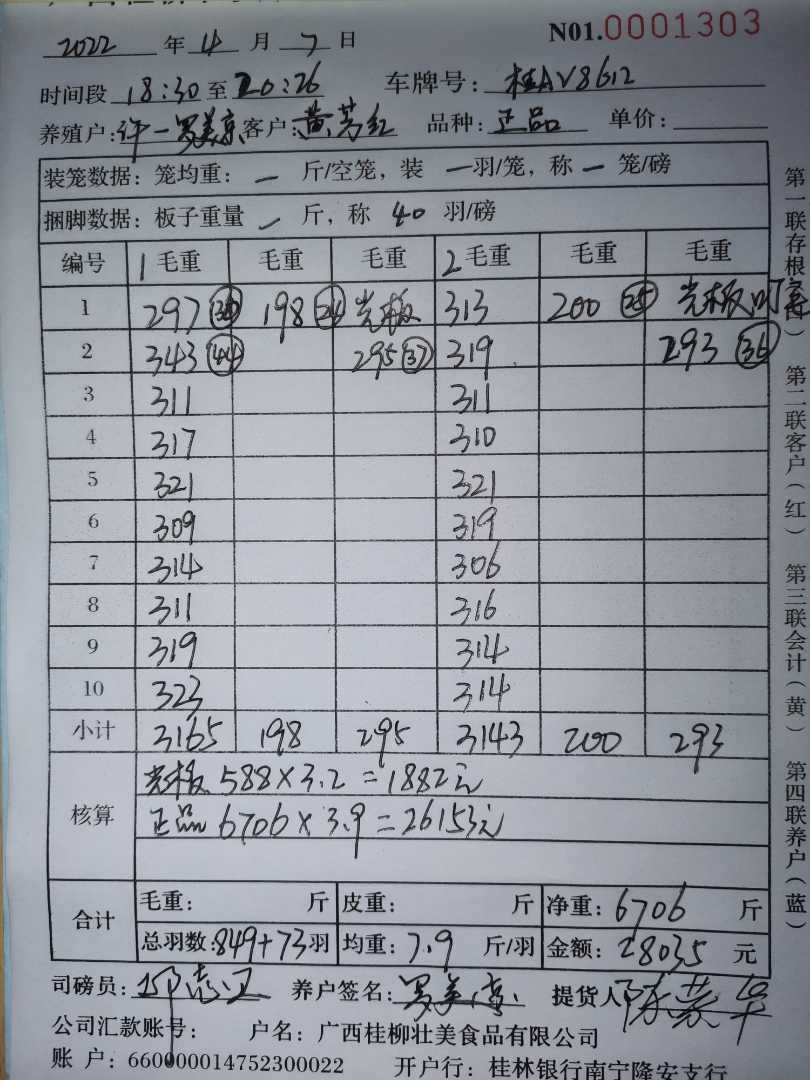 2022 年 4 月 7 日 N01.0001303
时间段 18:30 至 20:26 车牌号: 桂AV8612
养殖户: 许一罗美京 客户: 黄芳红 品种: 正品 单价:
装笼数据: 笼均重: — 斤/空笼, 装 一羽/笼, 称 一 笼/磅
捆脚数据: 板子重量 — 斤, 称 40 羽/磅
编号 1 毛重 毛重 毛重 2 毛重 毛重 毛重
1 297 (36) 198 (24) 光板 313 200 (25) 光板
2 343 (44) 295 (37) 319 293 (36)
3 311 311
4 317 310
5 321 321
6 309 319
7 314 306
8 311 316
9 319 314
10 323 314
小计 3165 198 295 3143 200 293
核算 光板 588×3.2=1882元
正品 6706×3.9=26153元
合计 毛重: 斤 皮重: 斤 净重: 6706 斤
总羽数: 849+73 羽 均重: 7.9 斤/羽 金额: 28035 元
司磅员: 养户签名: 罗美京 提货人
公司汇款账号: 户名: 广西桂柳壮美食品有限公司
账 户: 660000014752300022 开户行: 桂林银行南宁隆安支行
第一联存根(白) 第二联客户(红) 第三联会计(黄) 第四联养户(蓝)